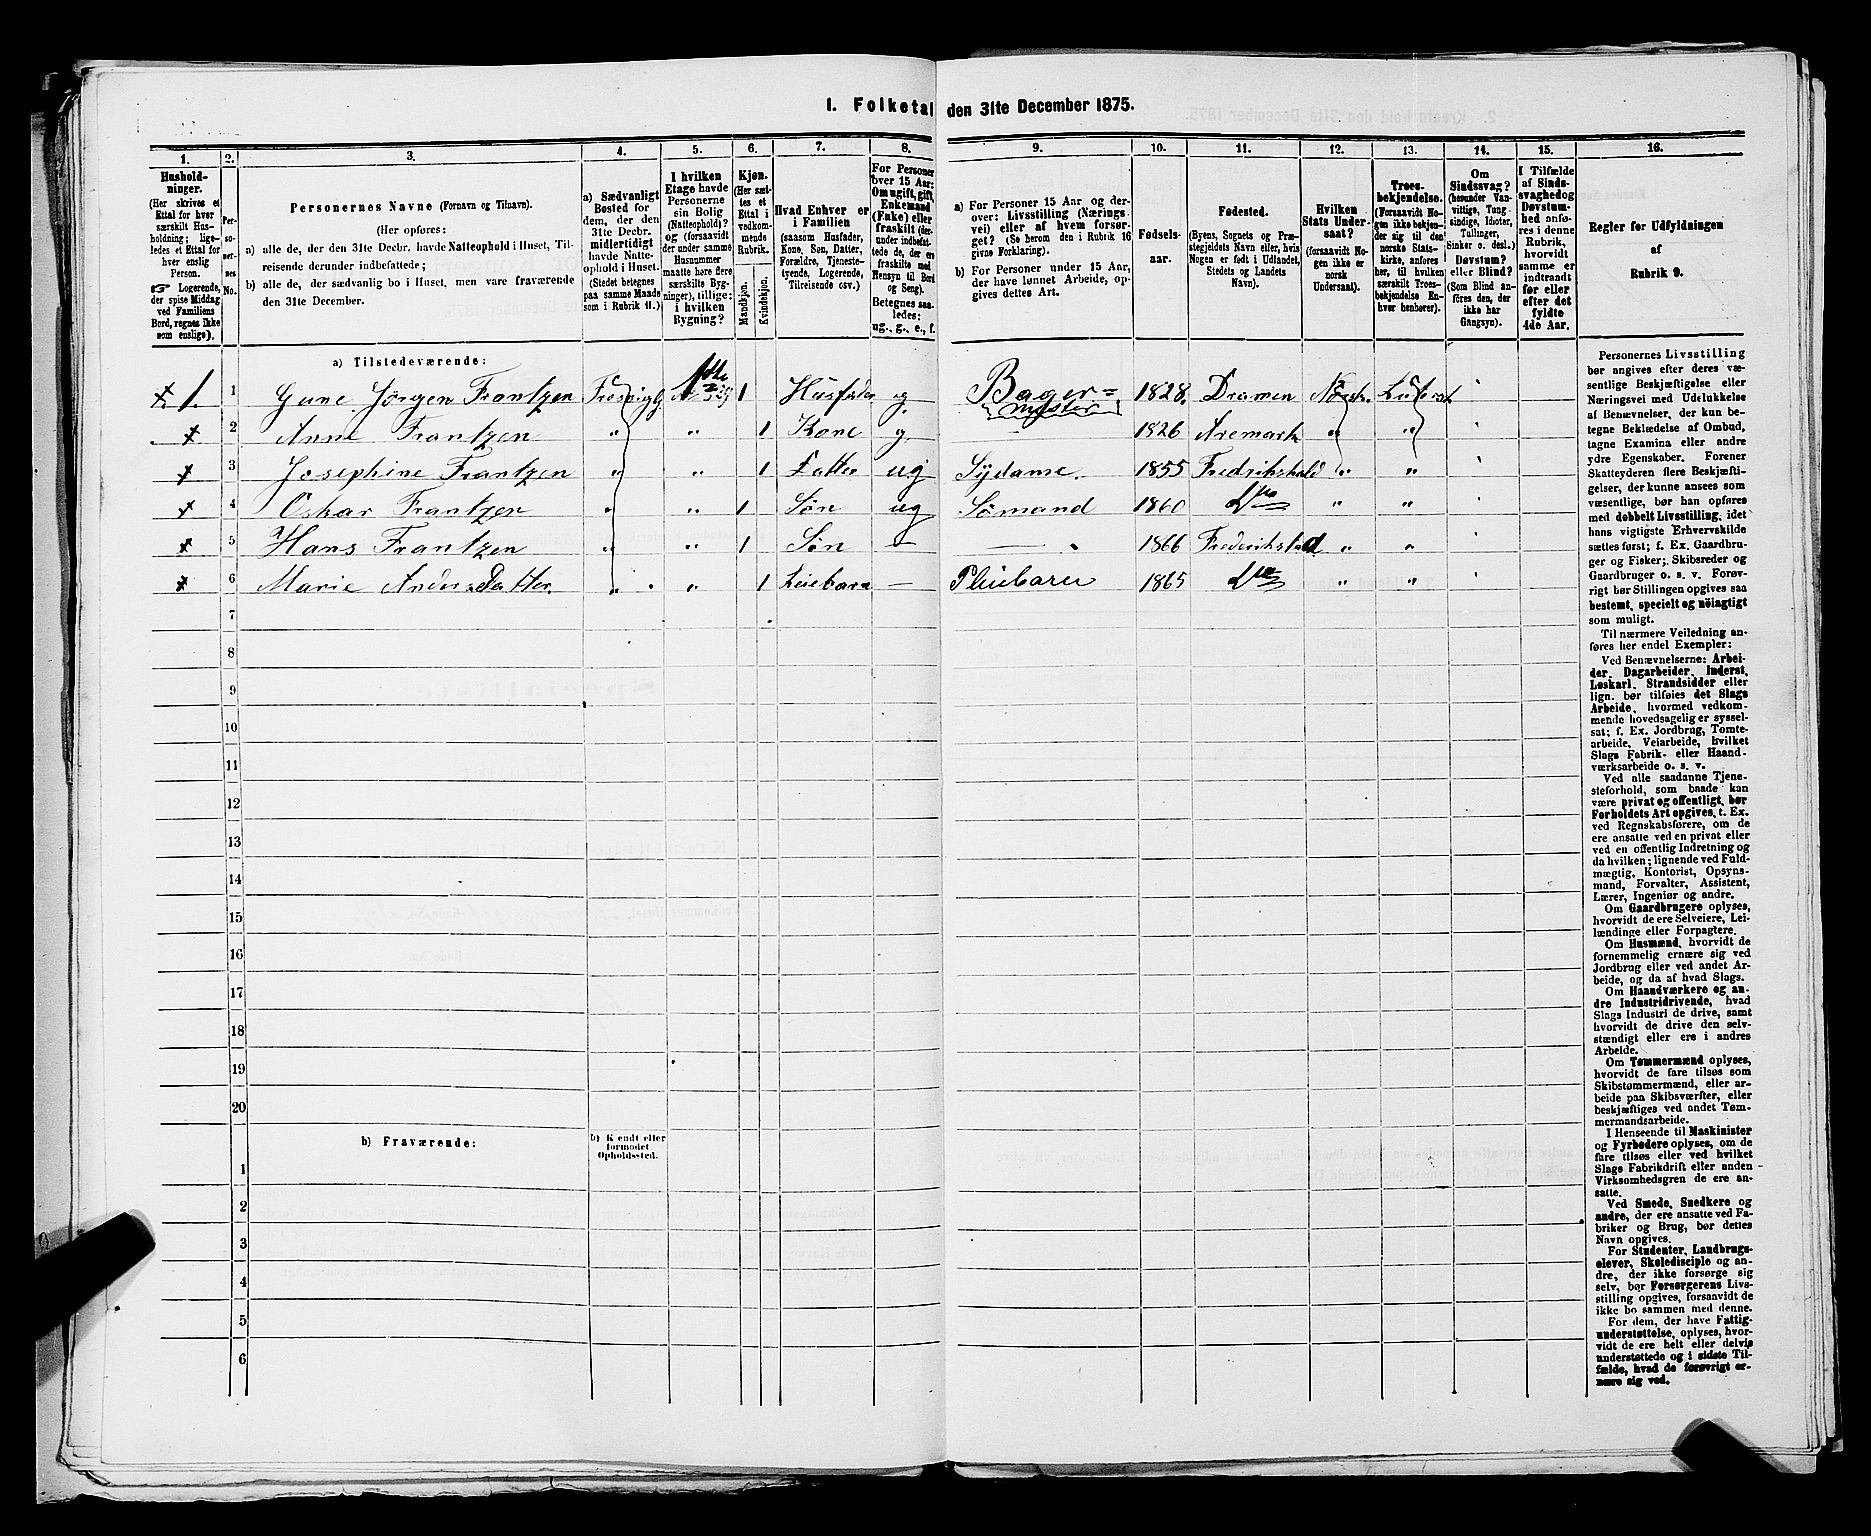 1. Folketal den 31te December 1875.
1. 2. 3. 4. 5. 6. 7. 8. 9. 10. 11. 12. 13. 14. 15. 16.
Hushold-
ninger.
(Her skrives et
Ettal for hver
særskilt Hus-
holdning; lige-
ledes et Ettal for
hver enslig
Person.
☞ Logerende,
der spise Middag
ved Familiens
Bord, regnes ikke
som enslige).
Per-
so-
ner-
nes
No.
Personernes Navne (Fornavn og Tilnavn).
(Her opføres:
a) alle de, der den 31te Decbr. havde Natteophold i Huset, Til-
reisende derunder indbefattede;
b) alle de, der sædvanlig bo i Huset, men vare fraværende
den 31te December.
a) Sædvanligt
Bosted for
dem, der den
31te Decbr.
midlertidigt
havde Natte-
ophold i Huset.
(Stedet betegnes
paa samme Maade
som i Rubrik 11.)
I hvilken
Etage havde
Personerne
sin Bolig
(Natteophold)?
og (forsaavidt
der under samme
Husnummer
maatte høre flere
særskilte Byg-
ninger), tillige:
i hvilken
Bygning?
Kjøn.
(Her sæt-
tes et
Ettal i
vedkom-
mende
Rubrik.)
Mandkjøn.
Kvindekjøn.
Hvad Enhver er
i Familien
(saasom Husfader,
Kone, Søn, Datter,
Forældre, Tjeneste-
tyende, Logerende,
Tilreisende osv.)
For Personer
over 15 Aar:
Om ugift, gift,
Enkemand
(Enke) eller
fraskilt (der-
under indbefat-
tede de, der ere
fraskilte med
Hensyn til Bord
og Seng).
Betegnes saa-
ledes:
ug., g., e., f.
a) For Personer 15 Aar og der-
over: Livsstilling (Nærings-
vei) eller af hvem forsør-
get? (Se herom den i Rubrik 16
givne Forklaring).
b) For Personer under 15 Aar,
der have lønnet Arbeide, op-
gives dettes Art.
Fødsels-
aar.
Fødested.
(Byens, Sognets og Præ-
stegjeldets Navn eller, hvis
Nogen er født i Udlandet,
Stedets og Landets
Navn).
Hvilken
Stats Under-
saat?
(forsaavidt No-
gen ikke er
norsk
Undersaat).
Troes-
bekjendelse.
(Forsaavidt No-
gen ikke bekjen-
der sig til den
norske Stats-
kirke, anføres
her, til hvilken
særskilt Troes-
bekjendelse En-
hver henhører).
Om
Sindssvag?
(herunder Van-
vittige, Tung-
sindige, Idioter,
Tullinger,
Sinker o. desl.)
Døvstum?
eller Blind?
(Som Blind an-
føres den, der
ikke har
Gangsyn).
I Tilfælde
af Sinds-
svaghed og
Døvstum-
hed anfø-
res i denne
Rubrik,
hvorvidt
samme er
indtraadt
før eller
efter det
fyldte
4de Aar.
Regler for Udfyldningen
af
Rubrik 9.
a) Tilstedeværende:
1. 1 Jørgen Frantzen 1 Husfader ug Bager= 1828. Dramen Norsk. Luthersk
mester
2 Anne Frantzen „ „ 1 Kone g. 1826 Aremark „ „
3 Josephine Frantzen „ „ 1 Datter ug Sydame. 1855 Fredrikshald „ „
4 Oskar Frantzen „ „ 1 Søn ug Sømand 1860 Dto „ „
5 Hans Frantzen „ „ 1 Søn — — 1866 Frederikstad „ „
6 Marie AndersDatter. „ „ 1 Leiebarn — Pleiebarn 1865 Dto „ „
7
8
9
10
11
12
13
14
15
16
17
18
19
20
b) Fraværende:
b) Kjendt eller
formodet
Opholdssted.
1
2
3
4
5
6
Personernes Livsstilling
bør angives efter deres væ-
sentlige Beskjæftigelse eller
Næringsvei med Udelukkelse
af Benævnelser, der kun be-
tegne Beklædelse af Ombud,
tagne Examina eller andre
ydre Egenskaber. Forener
Skatteyderen flere Beskjæfti-
gelser, der kunne ansees som
væsentlige, bør han opføres
med dobbelt Livsstilling, idet
hans vigtigste Erhvervskilde
sættes først; f. Ex. Gaardbru-
ger og Fisker; Skibsreder og
Gaardbruger o. s. v. Forøv-
rigt bør Stillingen opgives saa
bestemt, specielt og nöiagtigt
som muligt.
Til nærmere Veiledning an-
føres her endel Exempler:
Ved Benævnelserne: Arbei-
der, Dagarbeider, Inderst,
Løskarl, Strandsidder eller
lign. bør tilføies det Slags
Arbeide, hvormed vedkom-
mende hovedsagelig er syssel-
sat; f. Ex. Jordbrug, Tomte-
arbeide, Veiarbeide, hvilket
Slags Fabrik- eller Haand-
værksarbeide o. s. v.
Ved alle saadanne Tjene-
steforhold, som baade kan
være privat og offentligt, bør
Forholdets Art opgives, t. Ex.
ved Regnskabsførere, om de
ere ansatte ved en privat eller
ved en offentlig Indretning og
da hvilken; lignende ved Fuld-
mægtig, Kontorist, Opsyns-
mand, Forvalter, Assistent,
Lærer, Ingeniør og andre.
Om Gaardbrugere oplyses,
hvorvidt de ere Selveiere, Lei-
lændinge eller Forpagtere.
Om Husmænd, hvorvidt de
fornemmelig ernære sig ved
Jordbrug eller ved andet Ar-
beide, og da af hvad Slags.
Om Haandværkere og an-
dre Industridrivende, hvad
Slags Industri de drive, samt
hvorvidt de drive den selv-
stændigt eller ere i andres
Arbeide.
Om Tømmermænd oplyses,
hvorvidt de fare tilsøs som
Skibstømmermænd, eller ar-
beide paa Skibsværfter, eller
beskjæftiges ved andet Tøm-
mermandsarbeide.
I Henseende til Maskinister
og Fyrbødere oplyses, om de
fare tilsøs eller ved hvilket
Slags Fabrikdrift eller anden
Virksomhedsgren de ere an-
satte.
Ved Smede, Snedkere og
andre, der ere ansatte ved Fa-
briker og Brug, bør dettes
Navn opgives.
For Studenter, Landbrugs-
elever, Skoledisciple og an-
dre, der ikke forsørge sig
selv, bør Forsørgerens Livs-
stilling opgives, forsaavidt de
ikke bo sammen med denne.
For dem, der have Fattig-
understøttelse, oplyses, hvor-
vidt de ere helt eller delvis
understøttede og i sidste Til-
fælde, hvad de forøvrigt er-
nære sig ved.